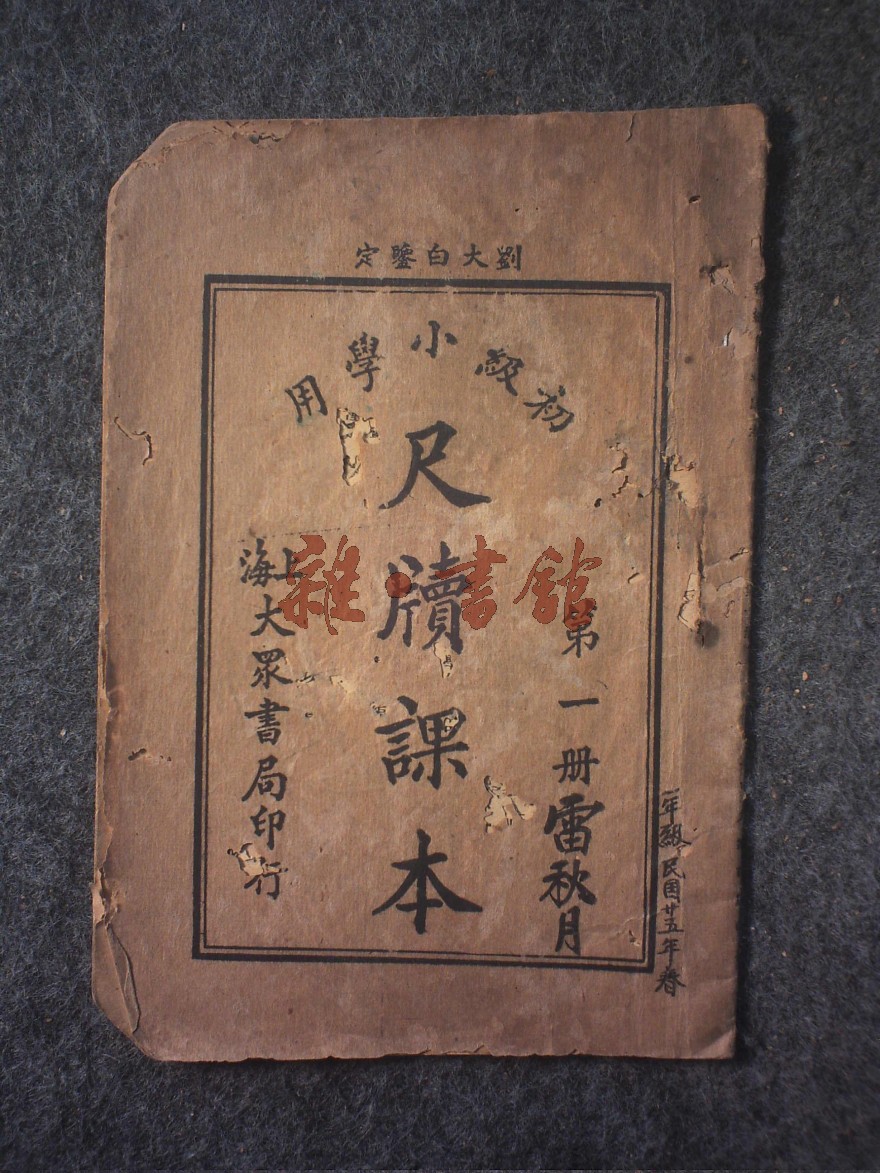 劉大白鑒定
初級小學用
尺牘課本
第一册
雷秋月
上海大眾書局印行
一年級 民国廿五年春
雜·書館